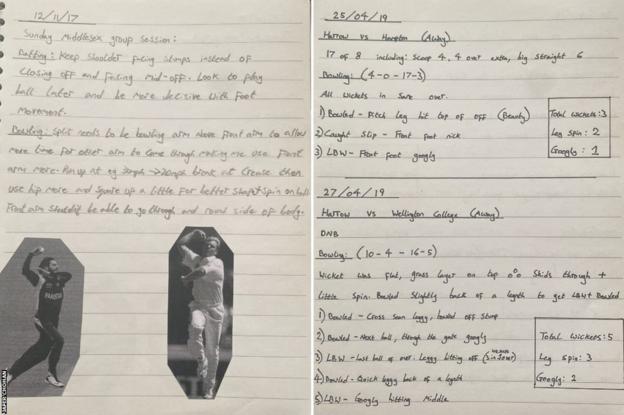 12/11/17
Sunday Middlesex group session:
Batting: Keep shoulder facing stumps instead of
closing off and facing mid-off. Look to play
ball later and be more decisive with foot
movement.
Bowling: Split needs to be bowling arm above front arm to allow
more time for other arm to come through making me use front
arm more. Run up at eg break at crease then
use hip more and square up a little for better shape + spin on ball
Front arm shouldn't be able to go through and round side of body.
PAKISTAN
25/04/19
Harrow vs Hampton (Away)
17 of 8 including: Scoop 4, 4 over extra, big straight 6
Bowling: (4-0-17-3)
All wickets in same over.
1) Bowled - Pitch leg hit top of off (Beauty)
2) Caught Slip - Front foot nick
3) LBW - Front foot googly
Total wickets: 3
Leg spin: 2
Googly: 1
27/04/19
Harrow vs Wellington College (Away)
DNB
Bowling: (10-4-16-5)
Wicket was flat, grass layer on top Skids through +
little spin. Bowled slightly back of a length to get LBW + Bowled
1) Bowled - Cross seam leggy, bowled off stump
2) Bowled - Next ball, through the gate googly
3) LBW - Last ball of over. Leggy hitting off
4) Bowled - Quick leggy back of a length
5) LBW - Googly hitting middle
Total wickets: 5
Leg spin: 3
Googly: 2